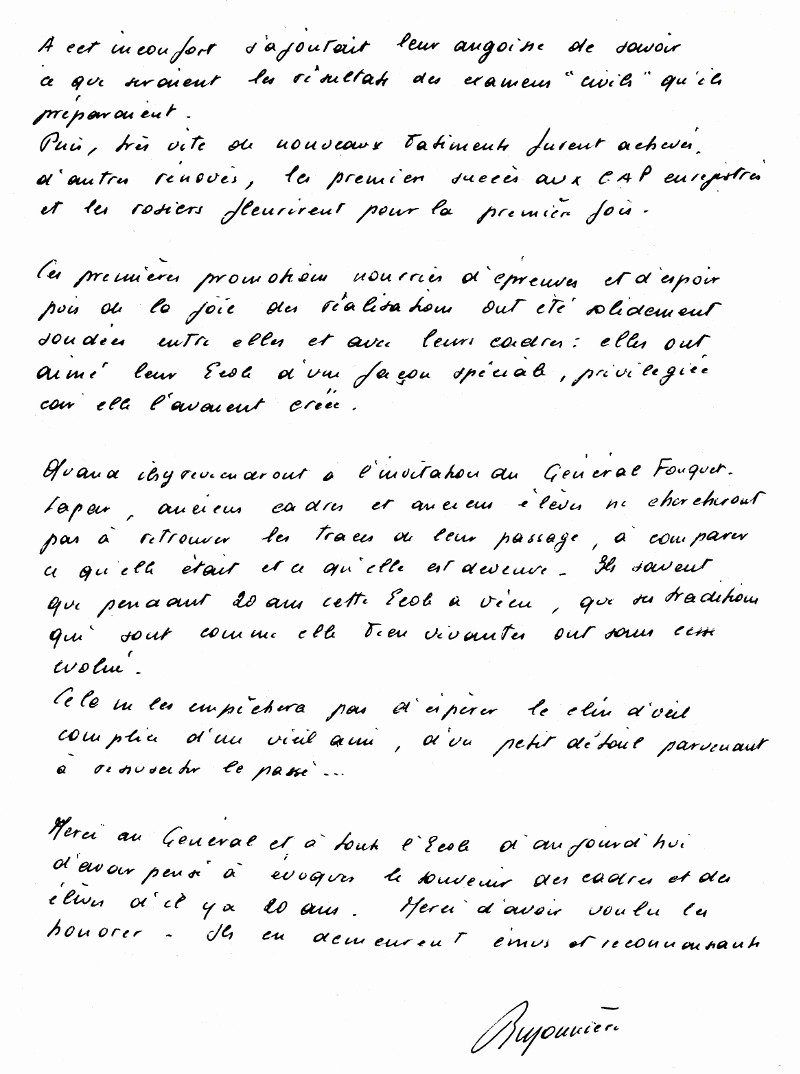 A cet inconfort s'ajoutait leur angoisse de savoir
ce que seraient les résultats des examens "civils" qu'ils
préparaient.
Puis, très vite de nouveaux batiments furent achevés,
d'autres rénovés, les premiers succès aux CAP enregistrés
et les rosiers fleurirent pour la première fois.
Ces premières promotions nourries d'épreuves et d'espoir
puis de la joie des réalisations ont été solidement
soudées entre elles et avec leurs cadres : elles ont
aimé leur Ecole d'une façon spéciale, privilégiée
car elle l'avaient créée.
Quand ils y reviendront à l'invitation du Général Fouquet-
Lapar, anciens cadres et anciens élèves ne chercheront
pas à retrouver les traces de leur passage, à comparer
ce qu'elle était et ce qu'elle est devenue. Ils savent
que pendant 20 ans cette Ecole a vécu, que ses traditions
qui sont comme elle bien vivantes ont sans cesse
évolué.
Cela ne les empêchera pas d'espérer le clin d'oeil
complice d'un vieil ami, d'un petit détail parvenant
à ressusciter le passé...
Merci au Général et à toute l'Ecole d'aujourd'hui
d'avoir pensé à évoquer le souvenir des cadres et des
élèves d'il y a 20 ans. Merci d'avoir voulu les
honorer - Ils en demeurent émus et reconnaissants